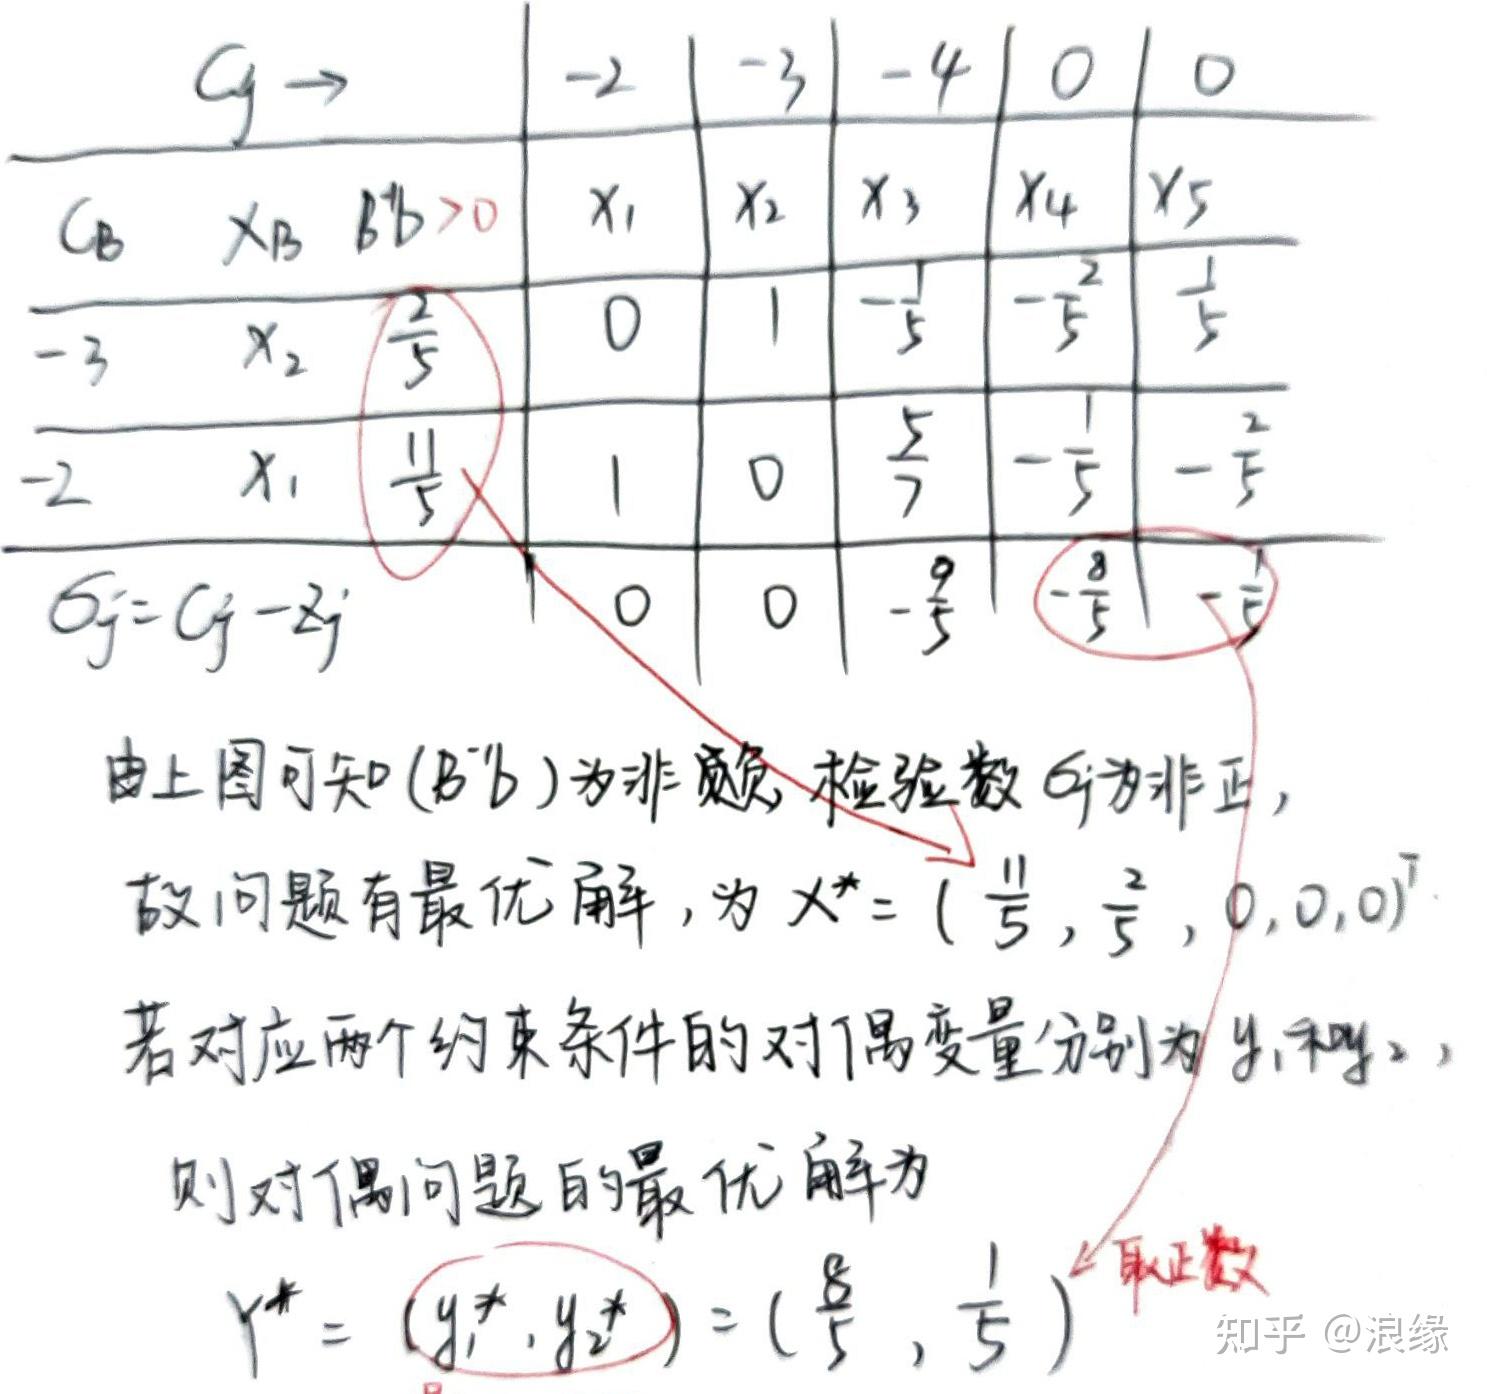 Cj → -2 -3 -4 0 0
CB XB B⁻¹b>0 x₁ x₂ x₃ x₄ x₅
-3 x₂ 2/5 0 1 -1/5 -2/5 1/5
-2 x₁ 11/5 1 0 5/7 -1/5 -2/5
σj=Cj-Zj 0 0 -9/5 -8/5 -1/5
由上图可知(B⁻¹b)为非负,检验数σj为非正,
故问题有最优解,为X*=(11/5,2/5,0,0,0)ᵀ.
若对应两个约束条件的对偶变量分别为y₁和y₂,
则对偶问题的最优解为
Y*=(y₁*,y₂*)=(8/5,1/5) 取正数
知乎 @浪缘